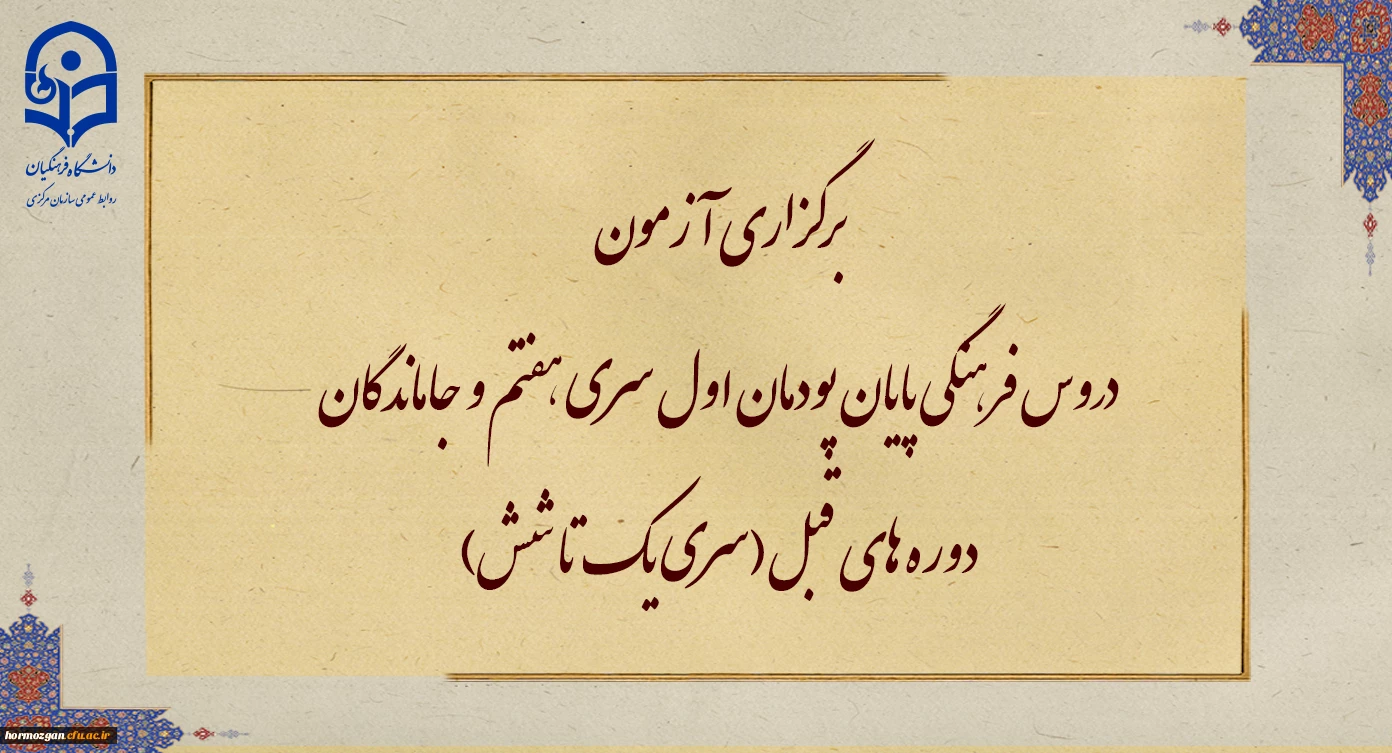 دانشگاه فرهنگیان
روابط عمومی سازمان مرکزی
برگزاری آزمون
دروس فرهنگی پایان پودمان اول سری هفتم و جاماندگان
دوره های قبل (سری یک تا شش)
hormozgan.cfu.ac.ir